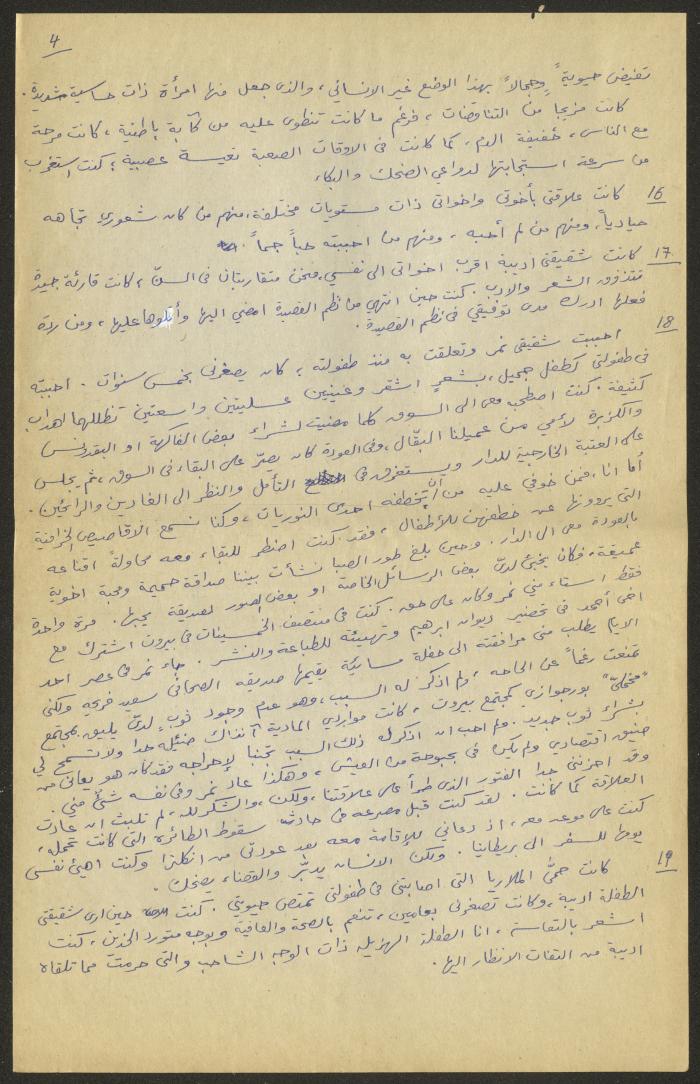 4
تفيض حيويةً وجمالاً بهذا الوضع غير الانساني، والذي جعل منها امرأة ذات حساسية شديدة.
كانت مزيجا من التناقضات، فرغم ما كانت تنطوي عليه من كآبة باطنية، كانت مرحة
مع الناس، خفيفة الدم، كما كانت في الاوقات الصعبة تعيسة عصبية؛ كنت استغرب
من سرعة استجابتها لدواعي الضحك والبكاء
16 كانت علاقتي بأخوتي واخواتي ذات مستويات مختلفة، منهم من كان شعوري تجاهه
حيادياً، ومنهم من لم أحبه، ومنهم من احببته حباً جماً.
17 كانت شقيقتي اديبة اقرب اخواتي الى نفسي، فنحن متقاربتان في السنّ، كانت قارئة جيدة
تتذوق الشعر والادب. كنت حين انتهي من نظم القصيدة امضي اليها وأتلوها عليها، ومن ردة
فعلها ادرك مدى توفيقي في نظم القصيدة.
18 احببت شقيقي نمر وتعلقت به منذ طفولته؛ كان يصغرني بخمس سنوات. احببته
في طفولتي كطفل جميل، بشعرٍ اشقر وعينين عسليتين واسعتين تظللهما اهداب
كثيفة. كنت اصطحبه معي الى السوق كلما مضيت لشراء بعض الفاكهة او البقدونس
والكزبرة لأمي من عميلنا البقّال، وفي العودة كان يصرّ على البقاء في السوق، ثم يجلس
على العتبة الخارجية للدار ويستغرق في التأمل والنظر الى الغادين والرائحين.
أما انا، فمن خوفي عليه من أن تخطفه احدى النوريات، وكنا نسمع الاقاصيص الخرافية
التي يروونها عن خطفهن للأطفال، فقد كنت اضطر للبقاء معه محاولةً اقناعه
بالعودة معي الى الدار. وحين بلغ طور الصبا نشأت بيننا صداقة حميمة ومحبة اخوية
عميقة، فكان يخبئ لديّ بعض الرسائل الخاصة او بعض الصور لصديقة يحبها. مرة واحدة
فقط استاء مني نمر وكان على حق. كنت في منتصف الخمسينات في بيروت اشترك مع
اخي أحمد في تحضير ديوان ابرهيم وتهيئته للطباعة والنشر. جاء نمر في عصر احد
الايام يطلب مني مرافقته الى حفلة مسائية يقيمها صديقه الصحافي سعيد فريحه ولكني
تمنعت رغماً عن الحاحه، ولم اذكر له السبب، وهو عدم وجود ثوبٍ لديّ يليق بمجتمع
"مخمليّ" بورجوازي كمجتمع بيروت، كانت مواردي المادية آنذاك ضئيلة جدا ولا تسمح لي
بشراء ثوب جديد. ولم احب ان اذكر له ذلك السبب تجنبا لإحراجه فقد كان هو يعاني من
ضيق اقتصادي ولم يكن في بحبوحة من العيش، وهكذا عاد نمر وفي نفسه شئ مني.
وقد احزنني جدا الفتور الذي طرأ على علاقتنا، ولكن، والشكر لله، لم تلبث ان عادت
العلاقة كما كانت. لقد كنت قبل مصرعه في حادث سقوط الطائرة التي كانت تحمله،
كنت على موعد معه، اذ دعاني للإقامة معه بعد عودتي من انكلترا وكنت اهيئ نفسي
يومها للسفر الى بريطانيا. ولكن الانسان يدبّر والقضاء يضحك.
19 كانت حمّى الملاريا التي اصابتني في طفولتي تمتص حيويتي. كنت حين ارى شقيقتي
الطفلة اديبة، وكانت تصغرني بعامين، تنعم بالصحة والعافية وبوجه متورد الخدين، كنت
اشعر بالتعاسة، انا الطفلة الهزيلة ذات الوجه الشاحب والتي حرمت مما تلقاه
اديبة من التفات الانظار اليها.